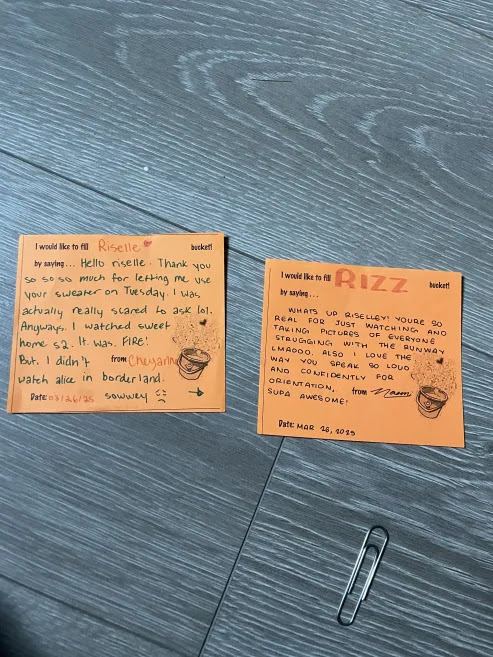 I would like to fill Riselle bucket!
by saying... Hello riselle. Thank you
so so so much for letting me use
your sweater on Tuesday. I was
actually really scared to ask lol.
Anyways. I watched sweet
home s2. It. was. FIRE!
But. I didn't from Cheyanne
watch alice in borderland.
Date: 03/26/25 sowwey
I would like to fill RIZZ bucket!
by saying...
WHATS UP RISELLEY! YOURE SO
REAL FOR JUST WATCHING AND
TAKING PICTURES OF EVERYONE
STRUGGLING WITH THE RUNWAY
LMAOOO. ALSO I LOVE THE
WAY YOU SPEAK SO LOUD
AND CONFIDENTLY FOR
ORIENTATION. from Naomi
SUPA AWESOME!
Date: MAR 26, 2025